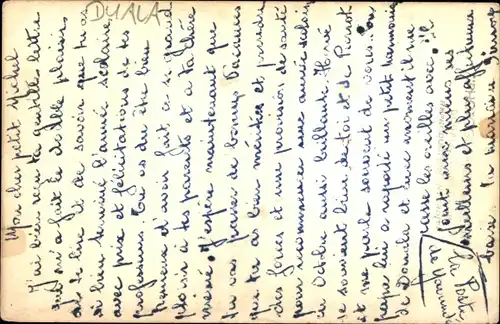 DUALA
Mon cher petit Michel
J'ai bien reçu ta gentille lettre
qui m'a fait le double plaisir
de te lire et de savoir que tu as
si bien terminé l'année scolaire
avec prix et félicitations de tes
professeurs. Tu as dû être bien
heureux d'avoir fait ce si grand
plaisir à tes parents et à ta chère
mémé. J'espère maintenant que
tu vas passer de bonnes vacances
que tu as bien méritées et prendre
des forces et une provision de santé
pour recommencer une année scolaire
en Octobre aussi brillante. Hervé
se souvient bien de toi et de
et me parle souvent de vous. Son
papa lui a rapporté un petit harmonica
de Douala et en ce moment il me
casse les oreilles avec.
toute mes
meilleurs et plus affectueux
baisers. Ta marraine